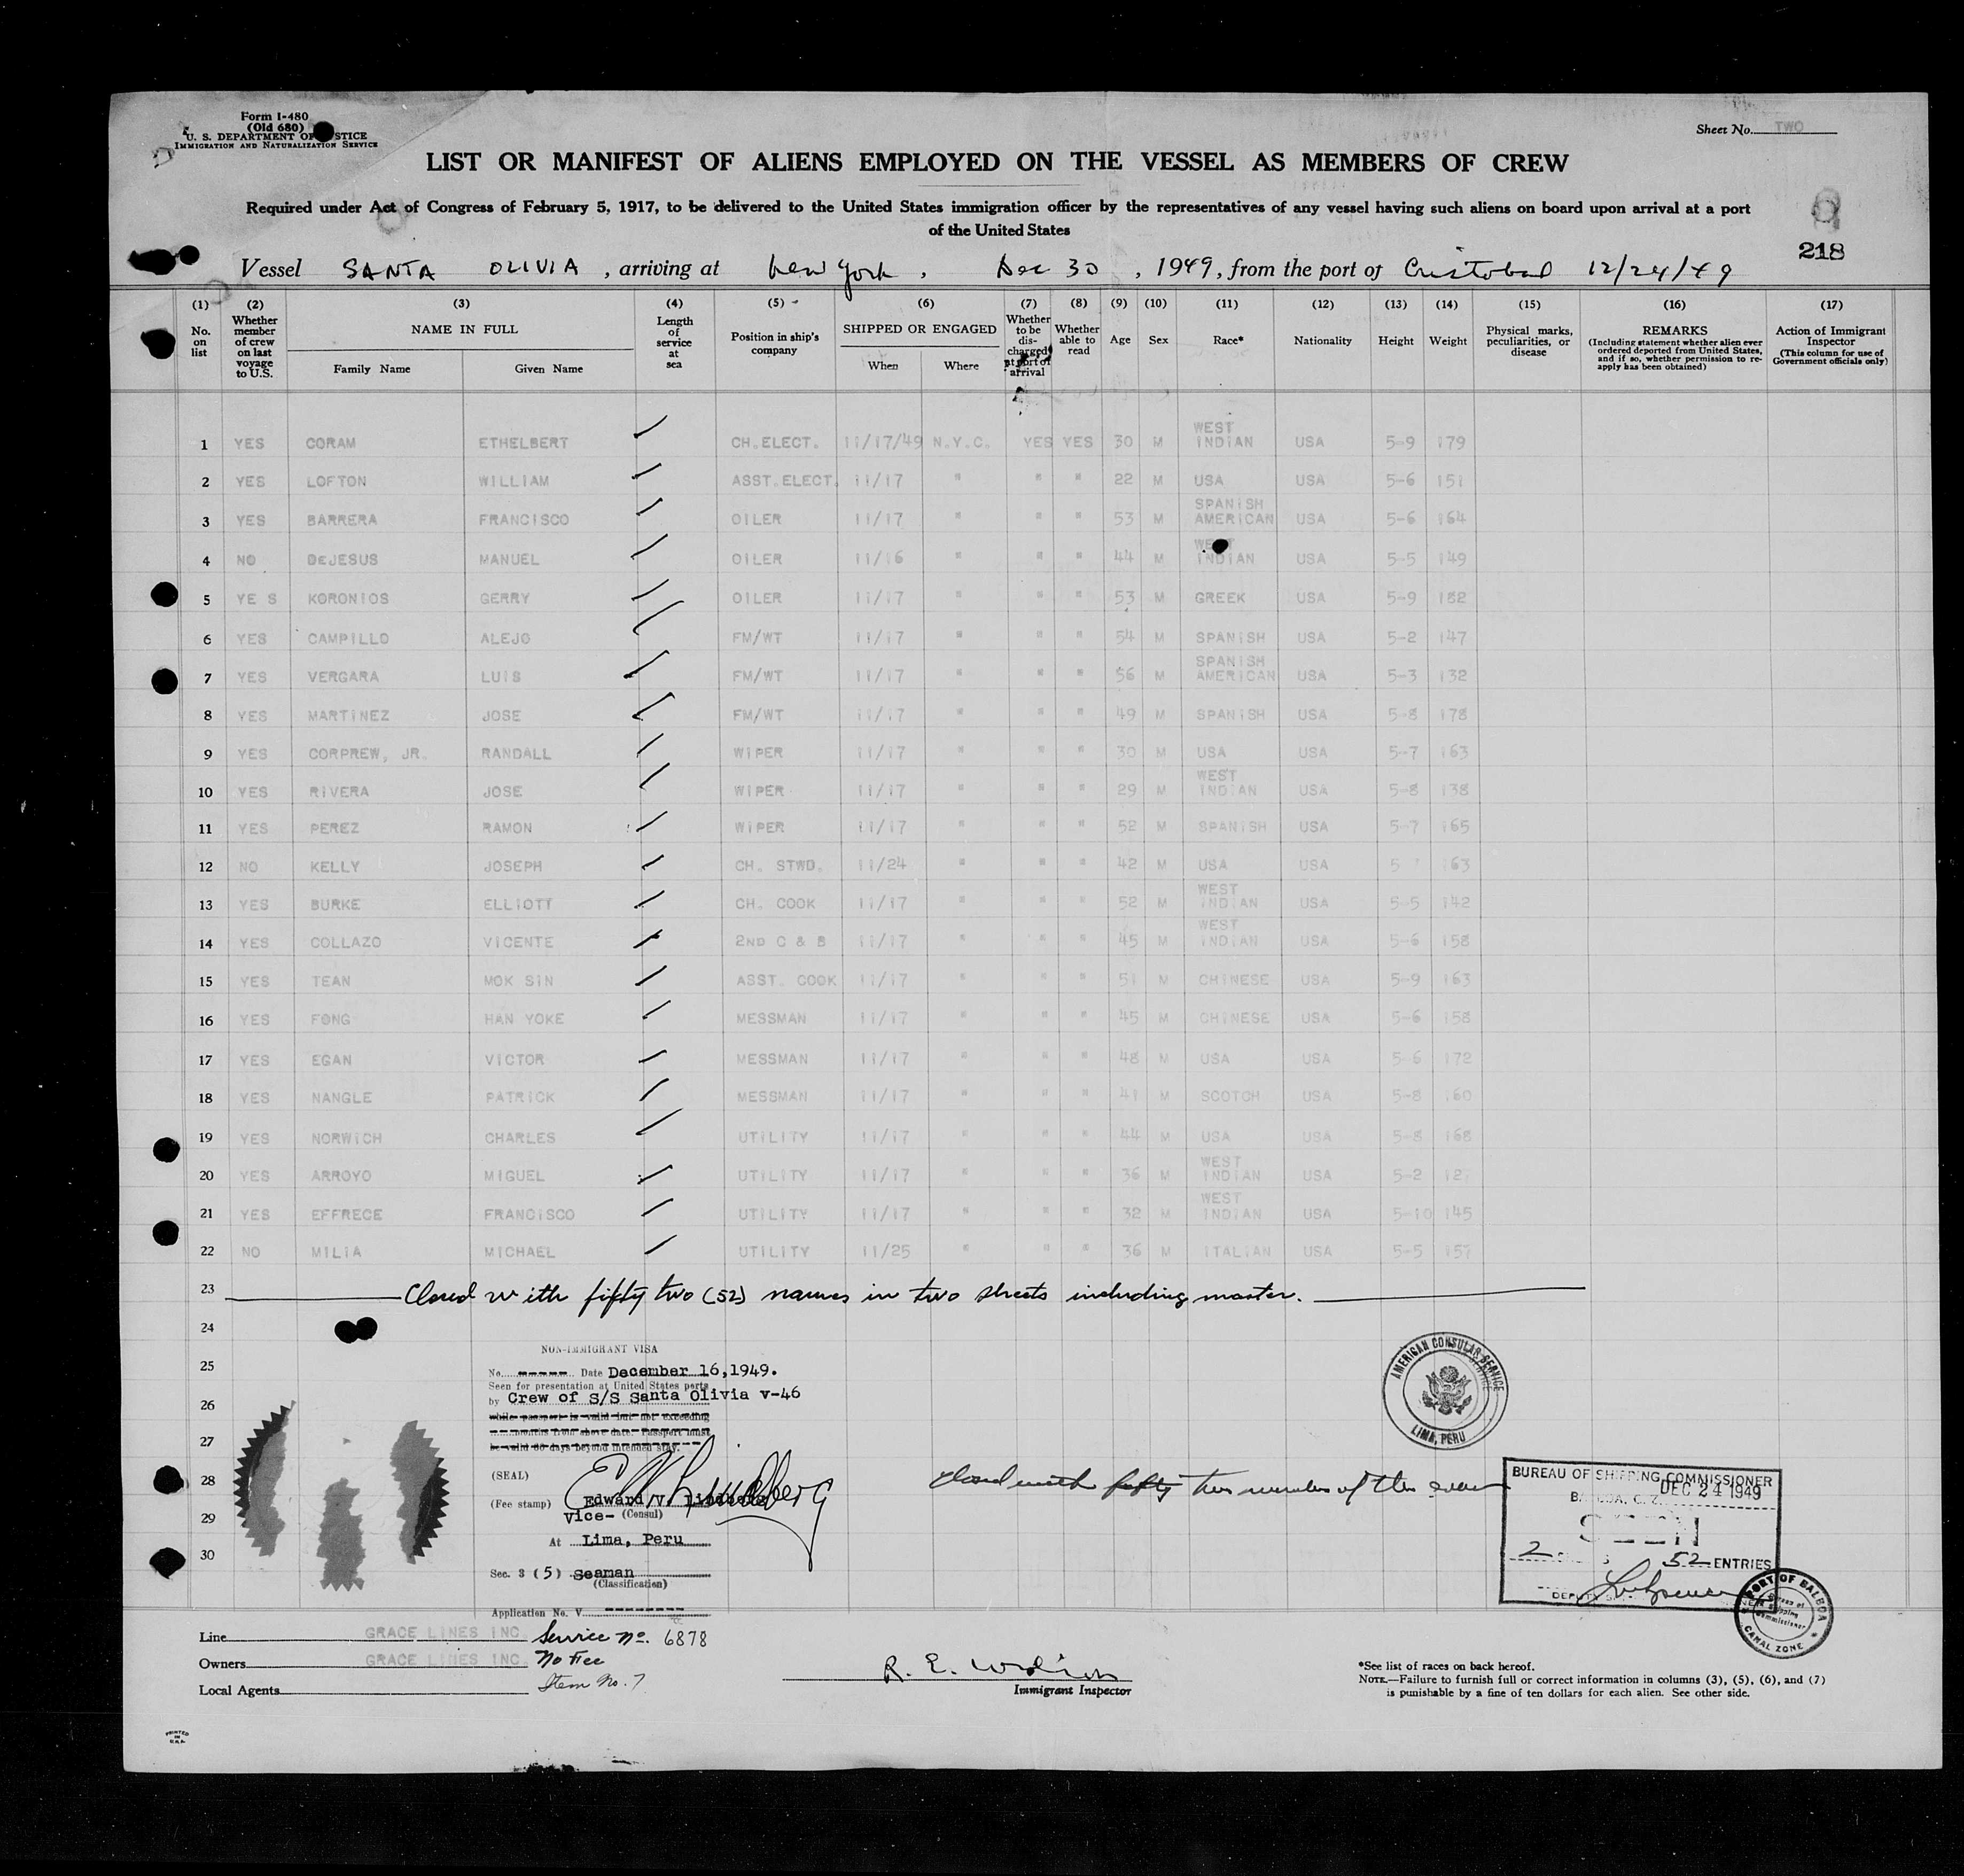 Form I-480
(Old 680)
U. S. DEPARTMENT OF JUSTICE
IMMIGRATION AND NATURALIZATION SERVICE
Sheet No. TWO
LIST OR MANIFEST OF ALIENS EMPLOYED ON THE VESSEL AS MEMBERS OF CREW
Required under Act of Congress of February 5, 1917, to be delivered to the United States immigration officer by the representatives of any vessel having such aliens on board upon arrival at a port
of the United States
218
Vessel SANTA OLIVIA , arriving at New York , Dec 30 , 1949, from the port of Cristobal 12/24/49
(1) No. on list
(2) Whether member of crew on last voyage to U.S.
(3) NAME IN FULL Family Name Given Name
(4) Length of service at sea
(5) Position in ship's company
(6) SHIPPED OR ENGAGED When Where
(7) Whether to be discharged at port of arrival
(8) Whether able to read
(9) Age
(10) Sex
(11) Race*
(12) Nationality
(13) Height
(14) Weight
(15) Physical marks, peculiarities, or disease
(16) REMARKS (Including statement whether alien ever ordered deported from United States, and if so, whether permission to reapply has been obtained)
(17) Action of Immigrant Inspector (This column for use of Government officials only)
1 YES CORAM ETHELBERT CH.ELECT. 11/17/49 N.Y.C. YES YES 30 M WEST INDIAN USA 5-9 179
2 YES LOFTON WILLIAM ASST.ELECT. 11/17 " " " 22 M USA USA 5-6 151
3 YES BARRERA FRANCISCO OILER 11/17 " " " 53 M SPANISH AMERICAN USA 5-6 164
4 NO DEJESUS MANUEL OILER 11/16 " " " 44 M WEST INDIAN USA 5-5 149
5 YE S KORONIOS GERRY OILER 11/17 " " " 53 M GREEK USA 5-9 182
6 YES CAMPILLO ALEJO FM/WT 11/17 " " " 54 M SPANISH USA 5-2 147
7 YES VERGARA LUIS FM/WT 11/17 " " " 56 M SPANISH AMERICAN USA 5-3 132
8 YES MARTINEZ JOSE FM/WT 11/17 " " " 49 M SPANISH USA 5-8 178
9 YES CORPREW, JR. RANDALL WIPER 11/17 " " " 30 M USA USA 5-7 163
10 YES RIVERA JOSE WIPER 11/17 " " " 29 M WEST INDIAN USA 5-8 138
11 YES PEREZ RAMON WIPER 11/17 " " " 52 M SPANISH USA 5-7 165
12 NO KELLY JOSEPH CH. STWD. 11/24 " " " 42 M USA USA 163
13 YES BURKE ELLIOTT CH. COOK 11/17 " " " 52 M WEST INDIAN USA 5-5 142
14 YES COLLAZO VICENTE 2ND C & B 11/17 " " " 45 M WEST INDIAN USA 5-6 158
15 YES TEAN MOK SIN ASST. COOK 11/17 " " " 51 M CHINESE USA 5-9 163
16 YES FONG HAN YOKE MESSMAN 11/17 " " " 45 M CHINESE USA 5-6 158
17 YES EGAN VICTOR MESSMAN 11/17 " " " 48 M USA USA 5-6 172
18 YES NANGLE PATRICK MESSMAN 11/17 " " " 41 M SCOTCH USA 5-8 160
19 YES NORWICH CHARLES UTILITY 11/17 " " " 44 M USA USA 5-8 168
20 YES ARROYO MIGUEL UTILITY 11/17 " " " 36 M WEST INDIAN USA 5-2
21 YES EFFRECE FRANCISCO UTILITY 11/17 " " " 32 M WEST INDIAN USA 5-10 145
22 NO MILIA MICHAEL UTILITY 11/25 " " " 36 M ITALIAN USA 5-5 157
23 Closed with fifty two (52) names in two sheets including master.
24
25
26
27
28
29
30
NON-IMMIGRANT VISA
No. ----- Date December 16,1949.
Seen for presentation at United States ports
by Crew of S/S Santa Olivia v-46
while passport is valid but not exceeding
months from above date. Passport must
be valid 60 days beyond intended stay.
(SEAL)
(Fee stamp) Edward V. Lindberg
Vice- (Consul)
At Lima, Peru
Sec. 3 (5) Seaman
(Classification)
Application No. V --------
AMERICAN CONSULAR SERVICE
LIMA, PERU
closed with fifty two members of the crew
BUREAU OF SHIPPING COMMISSIONER
BALBOA, C. Z. DEC 24 1949
SEEN
2 52 ENTRIES
DEPUTY
PORT OF BALBOA
Bureau of Shipping Commissioner
CANAL ZONE
Line GRACE LINES INC. Service No. 6878
Owners GRACE LINES INC. No Fee
Local Agents Item No. 7
Immigrant Inspector
*See list of races on back hereof.
NOTE.—Failure to furnish full or correct information in columns (3), (5), (6), and (7)
is punishable by a fine of ten dollars for each alien. See other side.
PRINTED
IN
U.S.A.